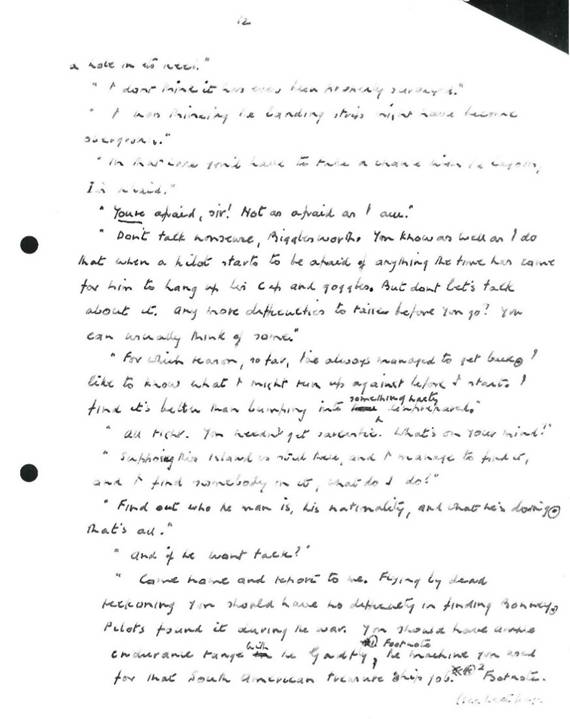 12
a hole in its keel."
"I dont think it has ever been properly surveyed."
"I was thinking the landing strips might have become
overgrown."
"In that case you'd have to take a chance with the lagoon,
I'm afraid."
"You're afraid, sir! Not as afraid as I am."
"Don't talk nonsense, Bigglesworth. You know as well as I do
that when a pilot starts to be afraid of anything the time has come
for him to hang up his cap and goggles. But dont let's talk
about it. Any more difficulties to raise before you go? You
can usually think of some."
"For which reason, so far, I've always managed to get back. I
like to know what I might run up against before I start. I
something nasty
find it's better than bumping into unprepared."
"All right. You needn't get sarcastic. What's on your mind?"
"Supposing this island is still there, and I manage to find it,
and I find somebody on it, what do I do?"
"Find out who the man is, his nationality, and what he's doing.
That's all."
"And if he wont talk?"
"Come home and report to me. Flying by dead
reckoning you should have no difficulty in finding
Pilots found it during the war. You should have
with Footnote
endurance range the Gadfly, the machine you used
for that South American treasure ship job. 2 Footnote.